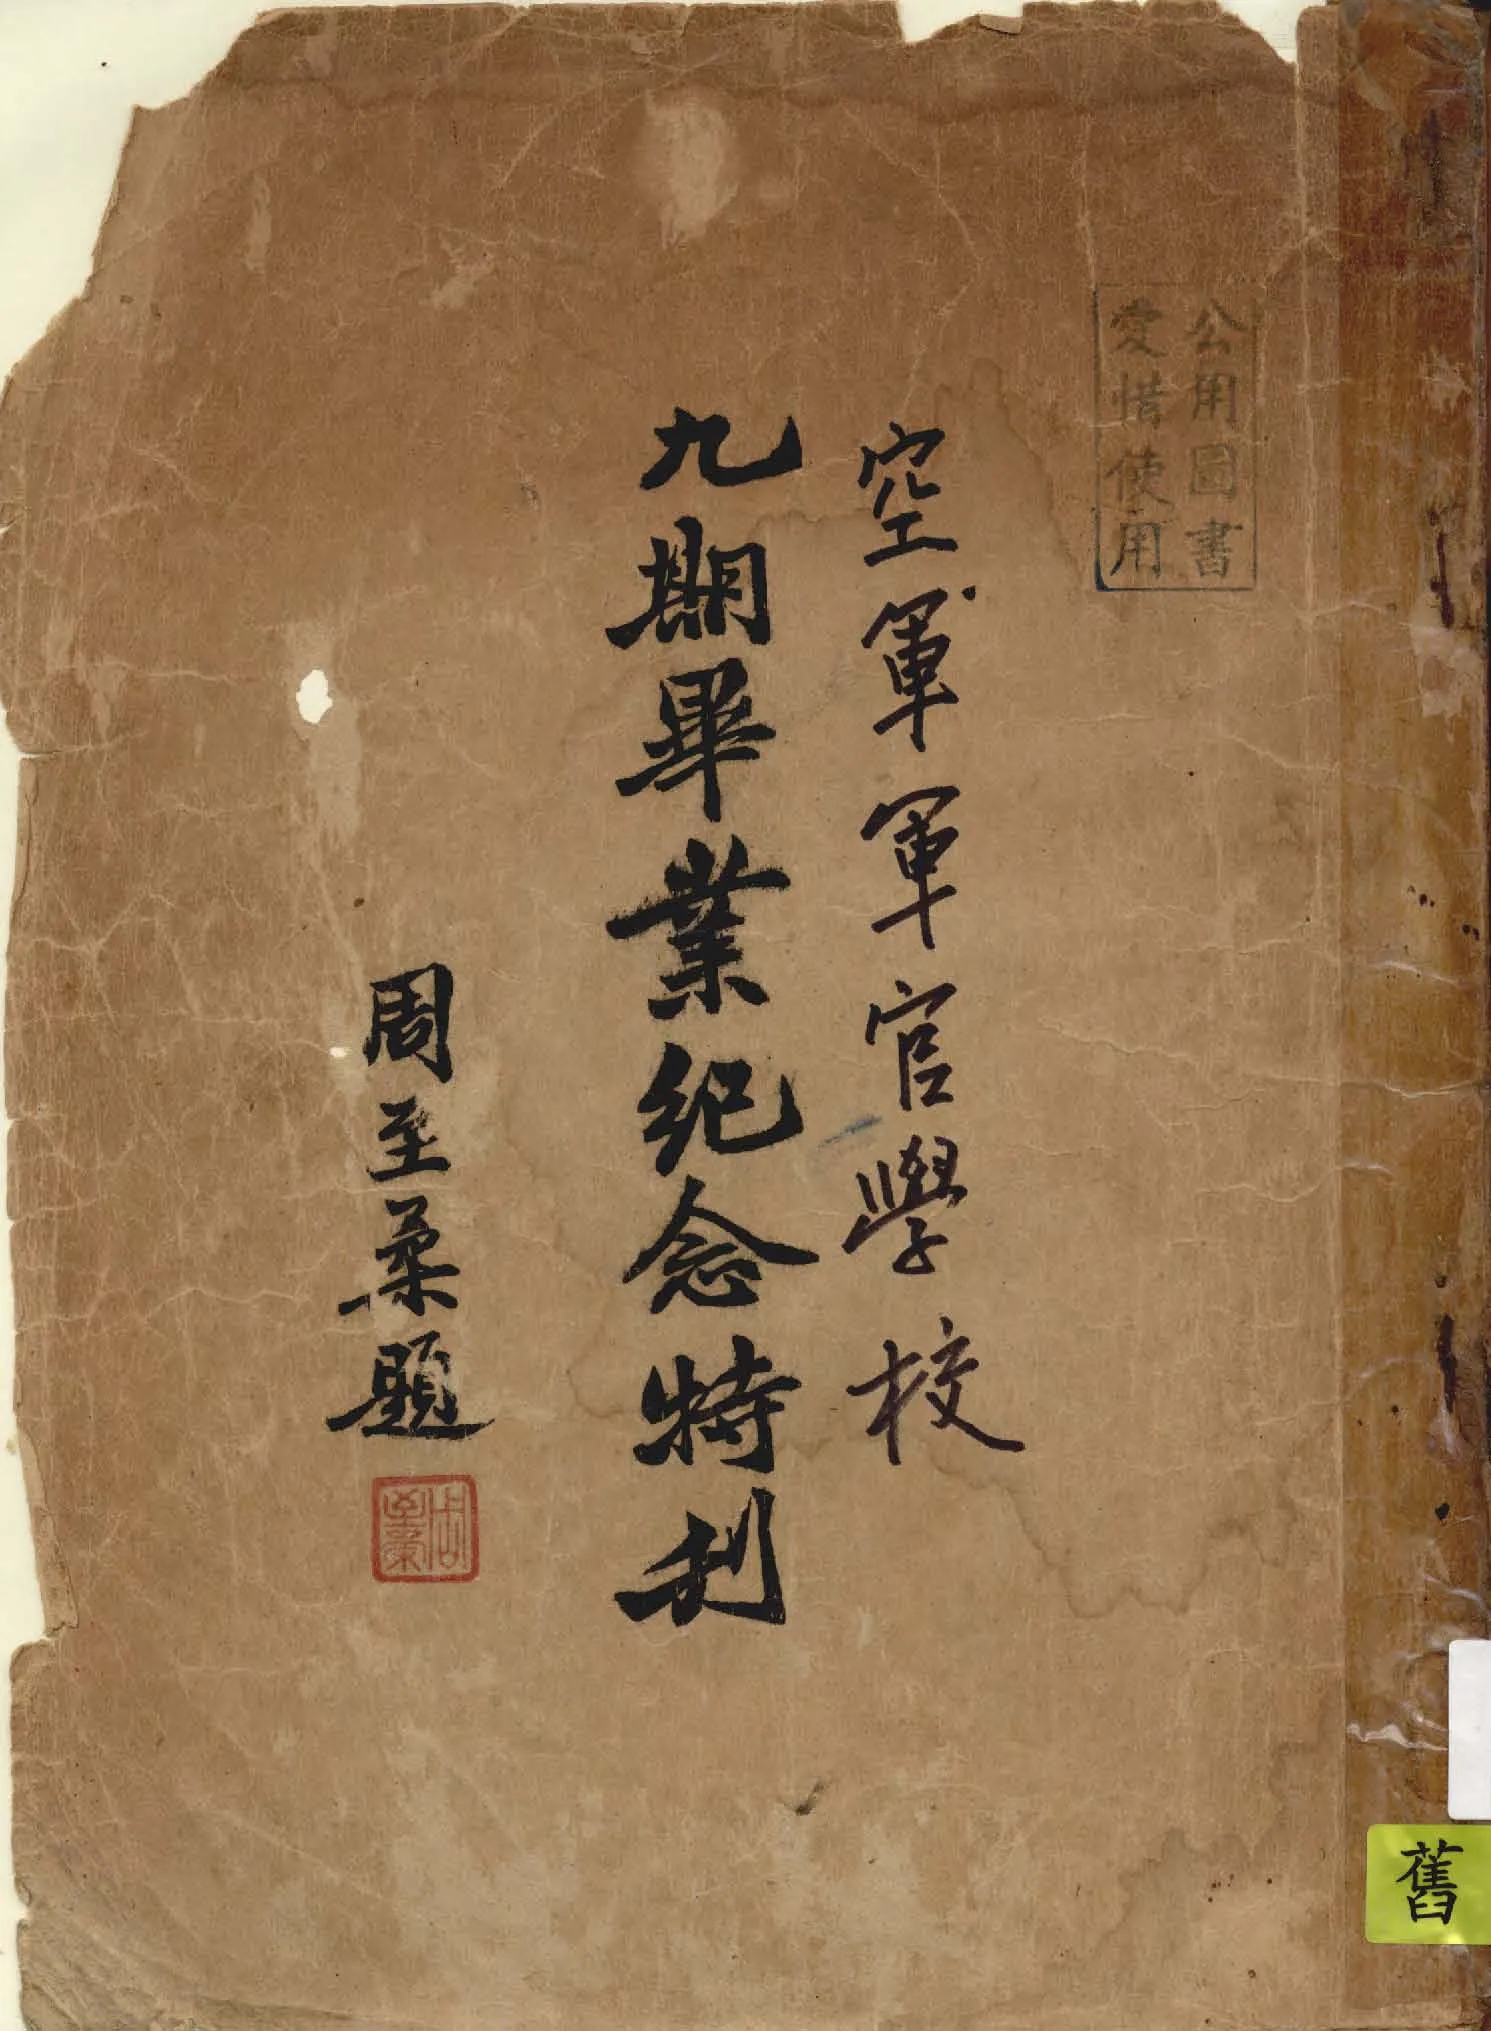 公用圖書
愛惜使用
空軍軍官學校
九期畢業紀念特刋
周至柔題
周至柔
舊